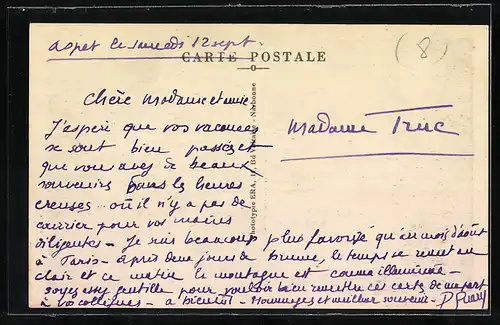 Aspet ce samedi 12 sept.
(8)
CARTE POSTALE
Chère Madame et amie
J'espère que vos vacances
se sont bien passées et
que vous avez de beaux
souvenirs dans les heures
creuses où il n'y a pas de
courrier pour vos mains
diligentes - Je suis beaucoup plus favorisé qu'au mois d'août
à Paris - après deux jours de brume, le temps se remet au
clair et ce matin la montagne est comme illuminée -
soyez assez gentille pour vouloir bien remettre ces cartes de ma part
à vos collègues - à bientôt - Hommages et meilleur souvenir -
Madame Truc
Phototypie ERA, Bd Narbonne